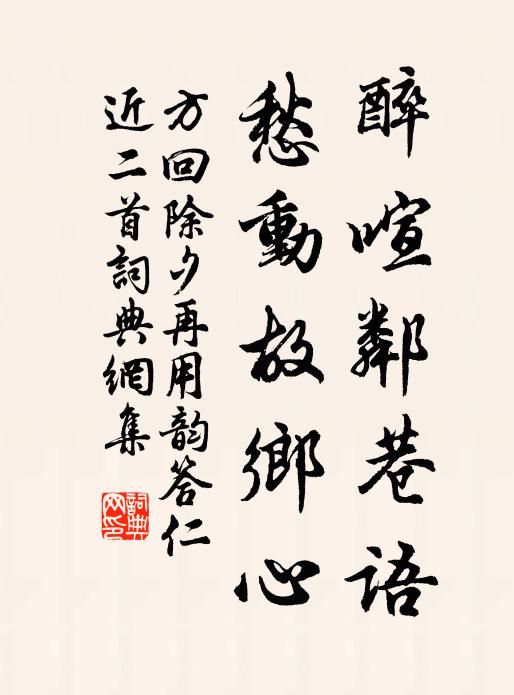 醉喧鄰巷語
愁動故鄉心
方回除夕再用韵答仁
近二首詞典網集
詞典
网印